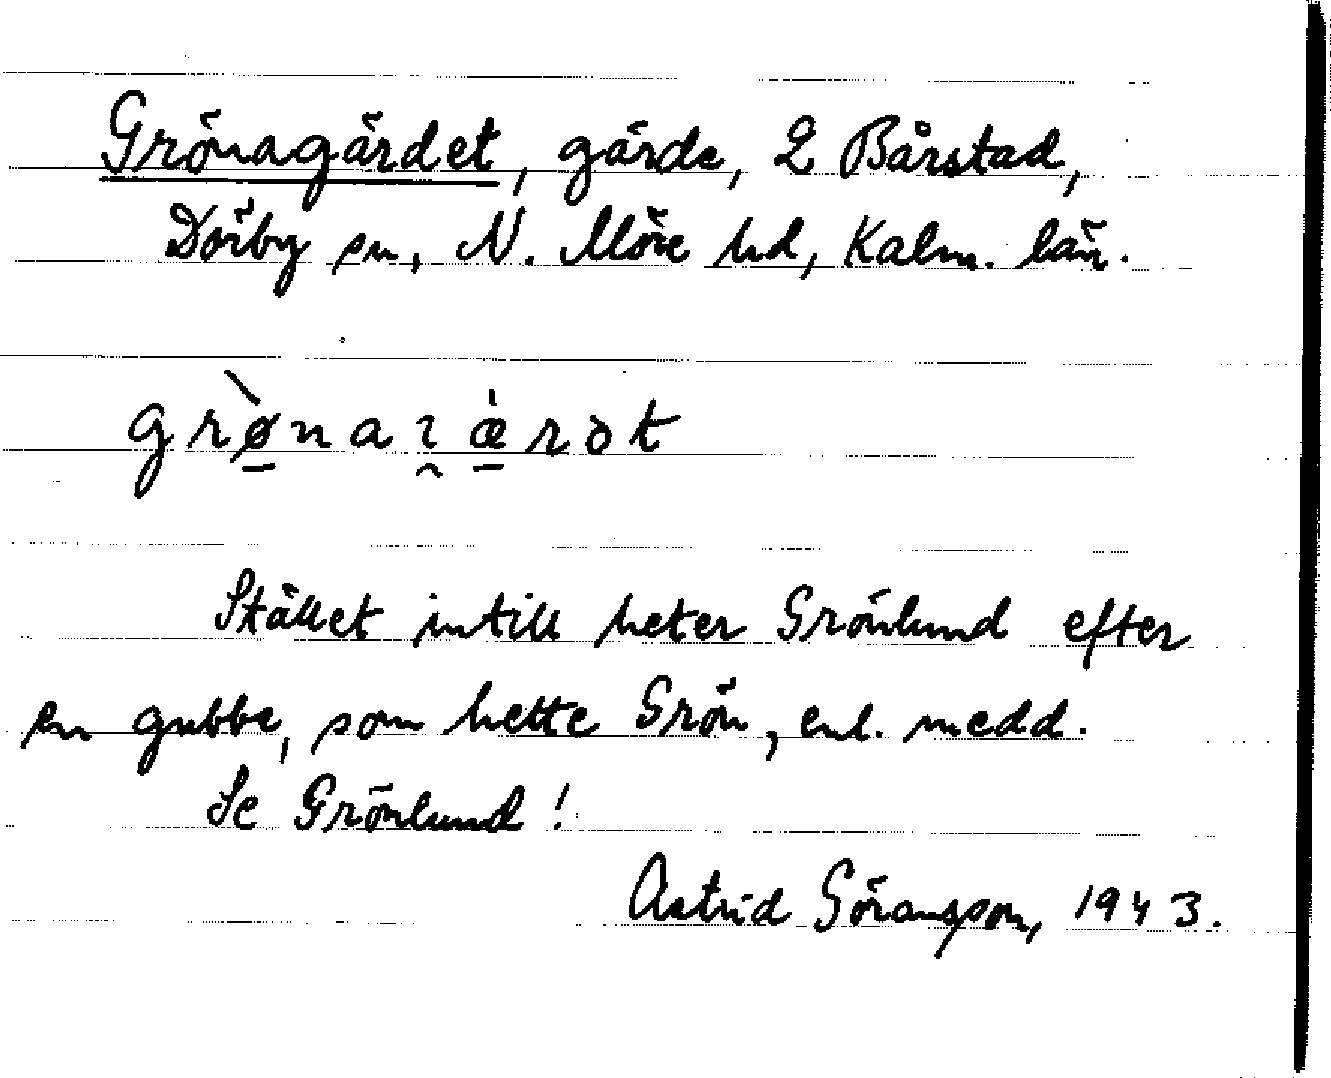 Grönagärdet, gärde, 2 Bårstad,
Dörby sn, N. Möre hd, Kalm. län.
grø̠̀naɿ̯æ̠̀rət
Stället intill heter Grönlund efter
en gubbe, som hette Grön, enl. medd.
Se Grönlund!
Astrid Göransson, 1943.